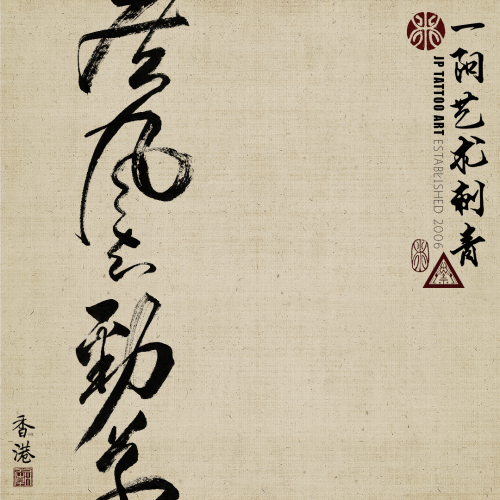 一阳艺术刺青
JP TATTOO ART ESTABLISHED 2006
疾风知劲草
香港